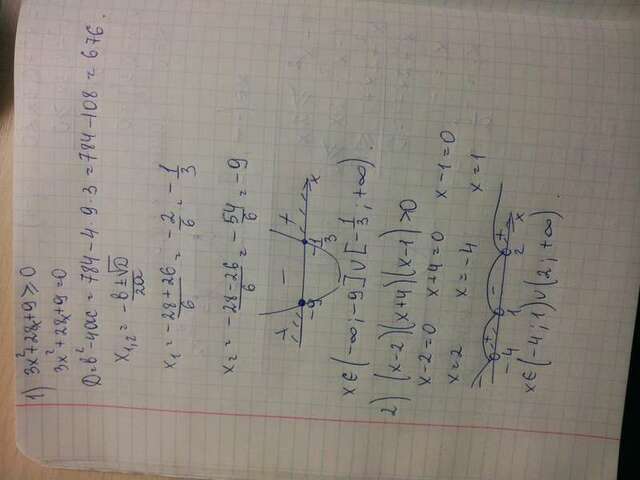 1) 3x²+28x+9≥0
3x²+28x+9=0
D=b²-4ac=784-4·9·3=784-108=676.
x₁,₂ = -b±√D / 2a
x₁ = -28+26 / 6 = -2/6 = -1/3
x₂ = -28-26 / 6 = -54/6 = -9
+ - + x
-9 -1/3
x∈(-∞;-9]∪[-1/3;+∞).
2) (x-2)(x+4)(x-1)>0
x-2=0 x+4=0 x-1=0
x=2 x=-4 x=1
- + - + x
-4 1 2
x∈(-4;1)∪(2;+∞).